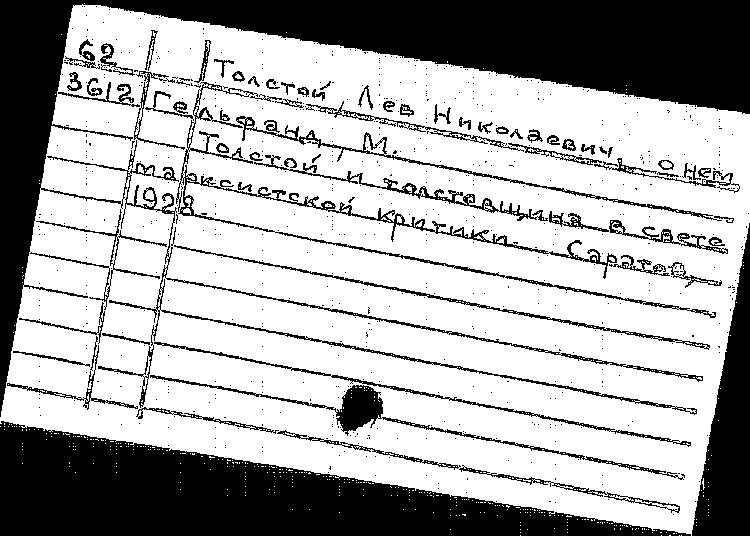 62 Толстой, Лев Николаевич, о нем
3612 Гельфанд, М.
Толстой и толстовщина в свете
марксистской критики. Саратов,
1928.